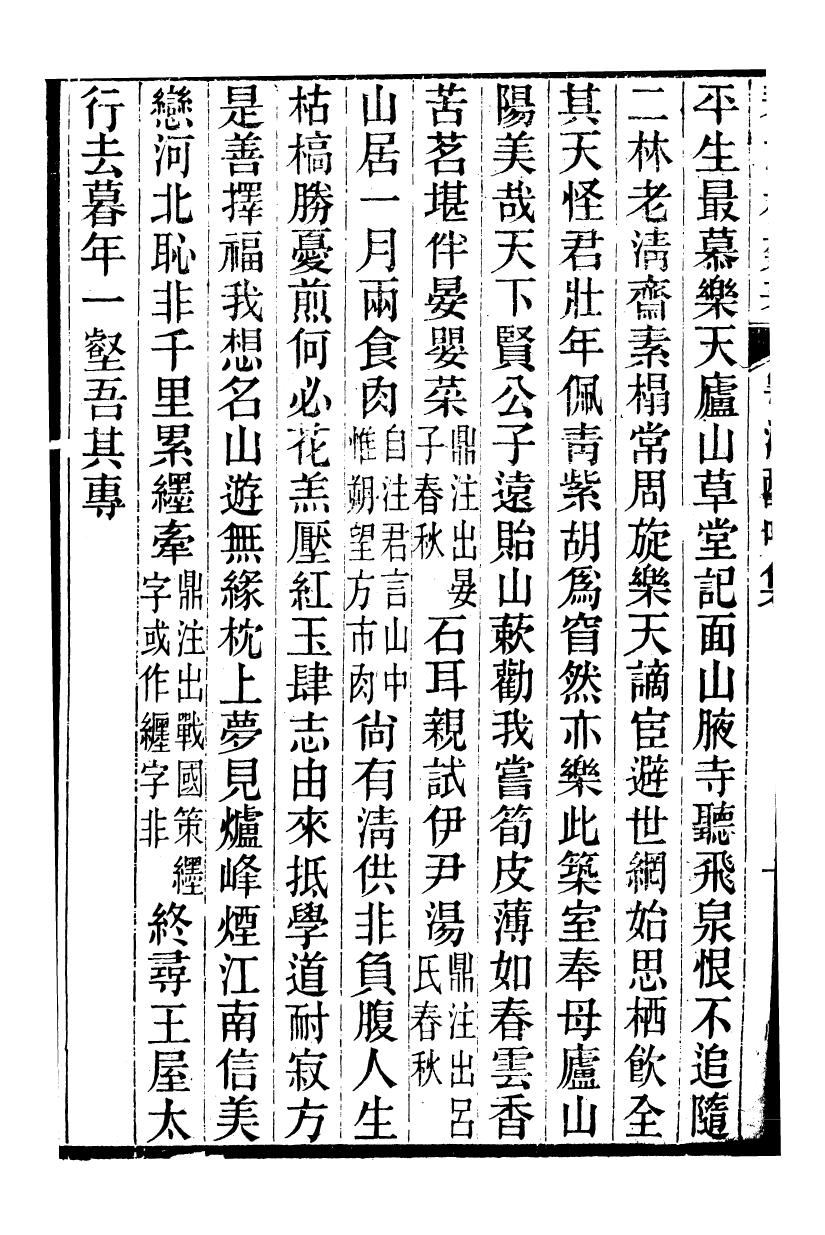 平生最慕樂天廬山草堂記面山腋寺聽飛泉恨不追隨
二林老淸齋素榻常周旋樂天謫宦避世網始思栖飮全
其天怪君壯年佩靑紫胡爲窅然亦樂此築室奉母廬山
陽美哉天下賢公子遠貽山蔌勸我嘗筍皮薄如春雲香
苦茗堪伴晏嬰菜鼎注出晏子春秋石耳親試伊尹湯鼎注出呂氏春秋
山居一月兩食肉自注君言山中惟朔望方市肉尙有淸供非負腹人生
枯槁勝憂煎何必花羔壓紅玉肆志由來抵學道耐寂方
是善擇福我想名山遊無緣枕上夢見爐峰煙江南信美
戀河北恥非千里累纆牽鼎注出戰國策纆字或作纏字非終尋王屋太
行去暮年一壑吾其專